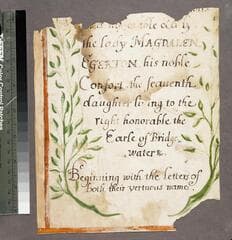 the lady MAGDALEN
EGERTON his noble
Consort the seauenth
daughter liuing to the
right honorable the
Earle of Bridge
water.
Beginning with the letters of
Both their vertuous names.